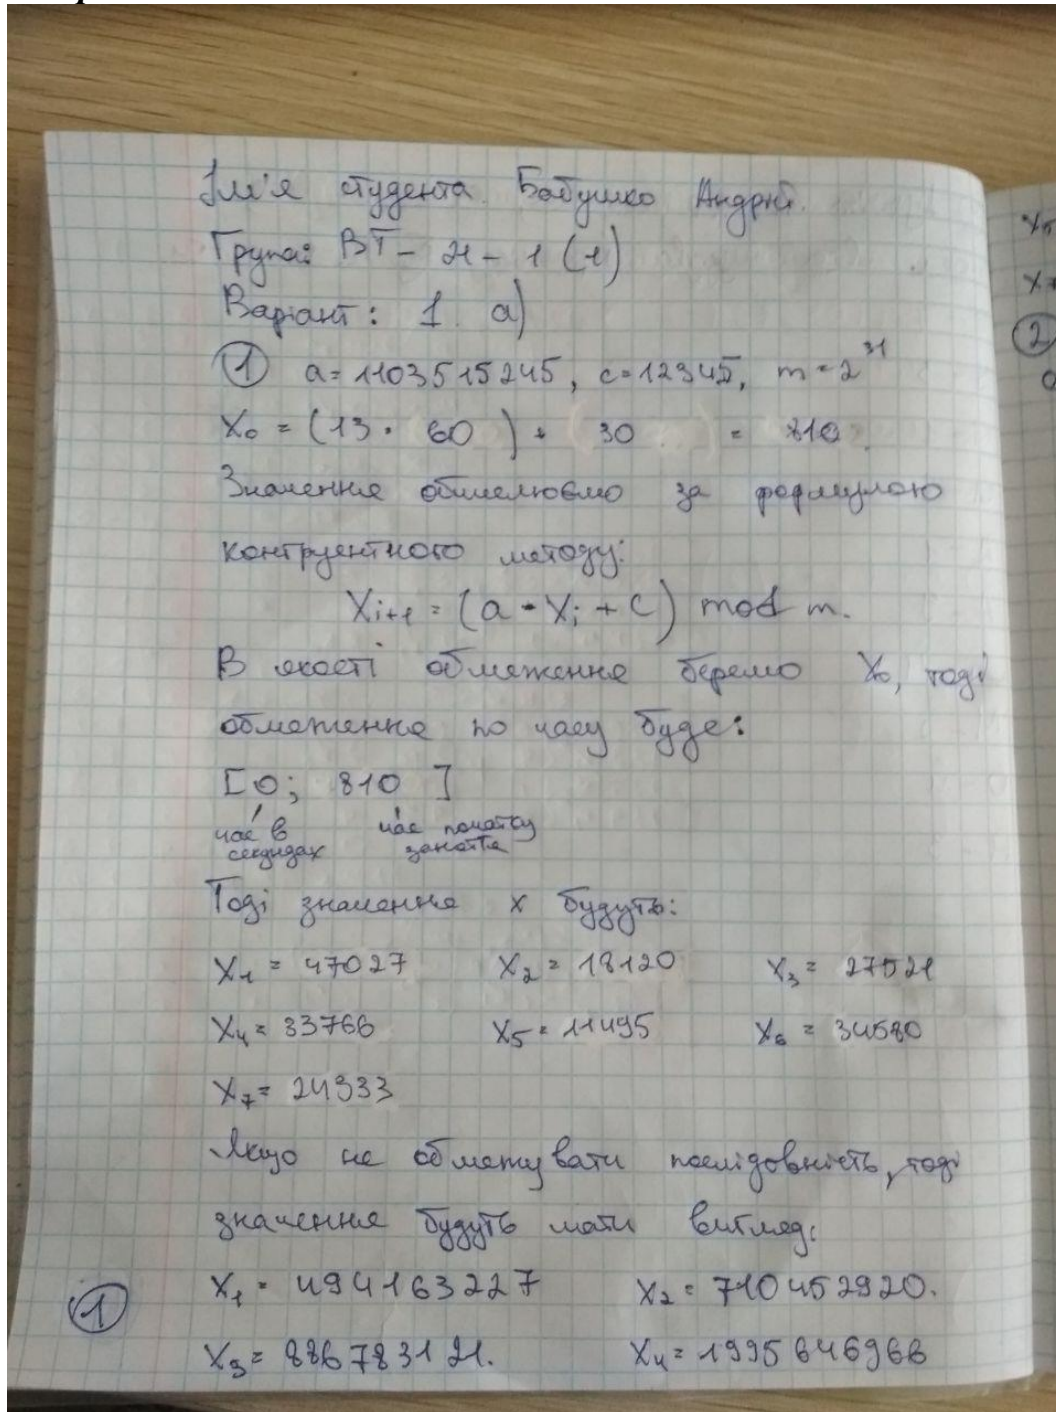 Ім'я студента. Бабушко Андрій.
Група: ВТ-21-1 (1)
Варіант: 1 а)
① a=1103515245, c=12345, m=2^31
X₀ = (13 · 60) + 30 = 810.
Значення обчислюємо за формулою
конгруентного методу:
Xᵢ₊₁ = (a · Xᵢ + c) mod m.
В якості обмеження беремо X₀, тоді
обмеження по часу буде:
[0; 810]
час в секундах час початку заняття
Тоді значення x будуть:
X₁ = 47027 X₂ = 18120 X₃ = 27521
X₄ = 33766 X₅ = 11495 X₆ = 34580
X₇ = 24933
Якщо не обмежувати послідовність, тоді
значення будуть мати вигляд:
X₁ = 494163227 X₂ = 710452920.
① X₃ = 886783121. X₄ = 1995646966
X₅
②